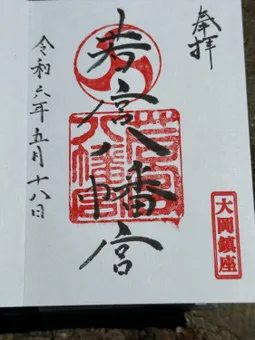 奉拝
若宮八幡宮
若宮八幡宮
大岡鎮座
令和六年五月十八日